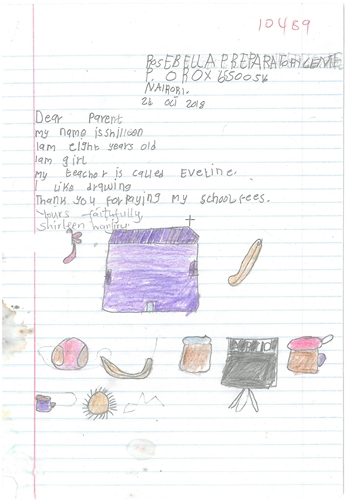 10489
ROSEBELLA PREPARATORY CENTE
P. O BOX 6500 54
NAIROBI.
26 Oct 2018
Dear Parent
my name is shilloon
I am eight years old
I am girl
my teacher is called Eveline.
I like drawing
Thank you for paying my school fees.
Yours faithfully,
shirleen wanjiru